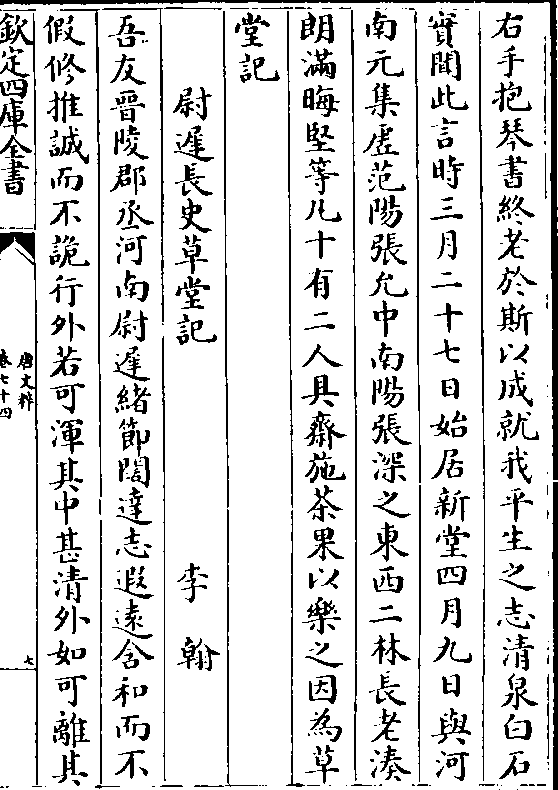 右手抱琴書終老於斯以成就我平生之志清泉白石
實聞此言時三月二十七日始居新堂四月九日與河
南元集虛范陽張允中南陽張深之東西二林長老湊
朗滿晦堅等凡十有二人具齋施茶果以樂之因為草
堂記
尉遲長史草堂記　李翰
吾友晉陵郡丞河南尉遲緒節闊達志遐遠含和而不
假修推誠而不詭行外若可渾其中甚清外如可離其
欽定四庫全書
唐文粹
卷七十四
七